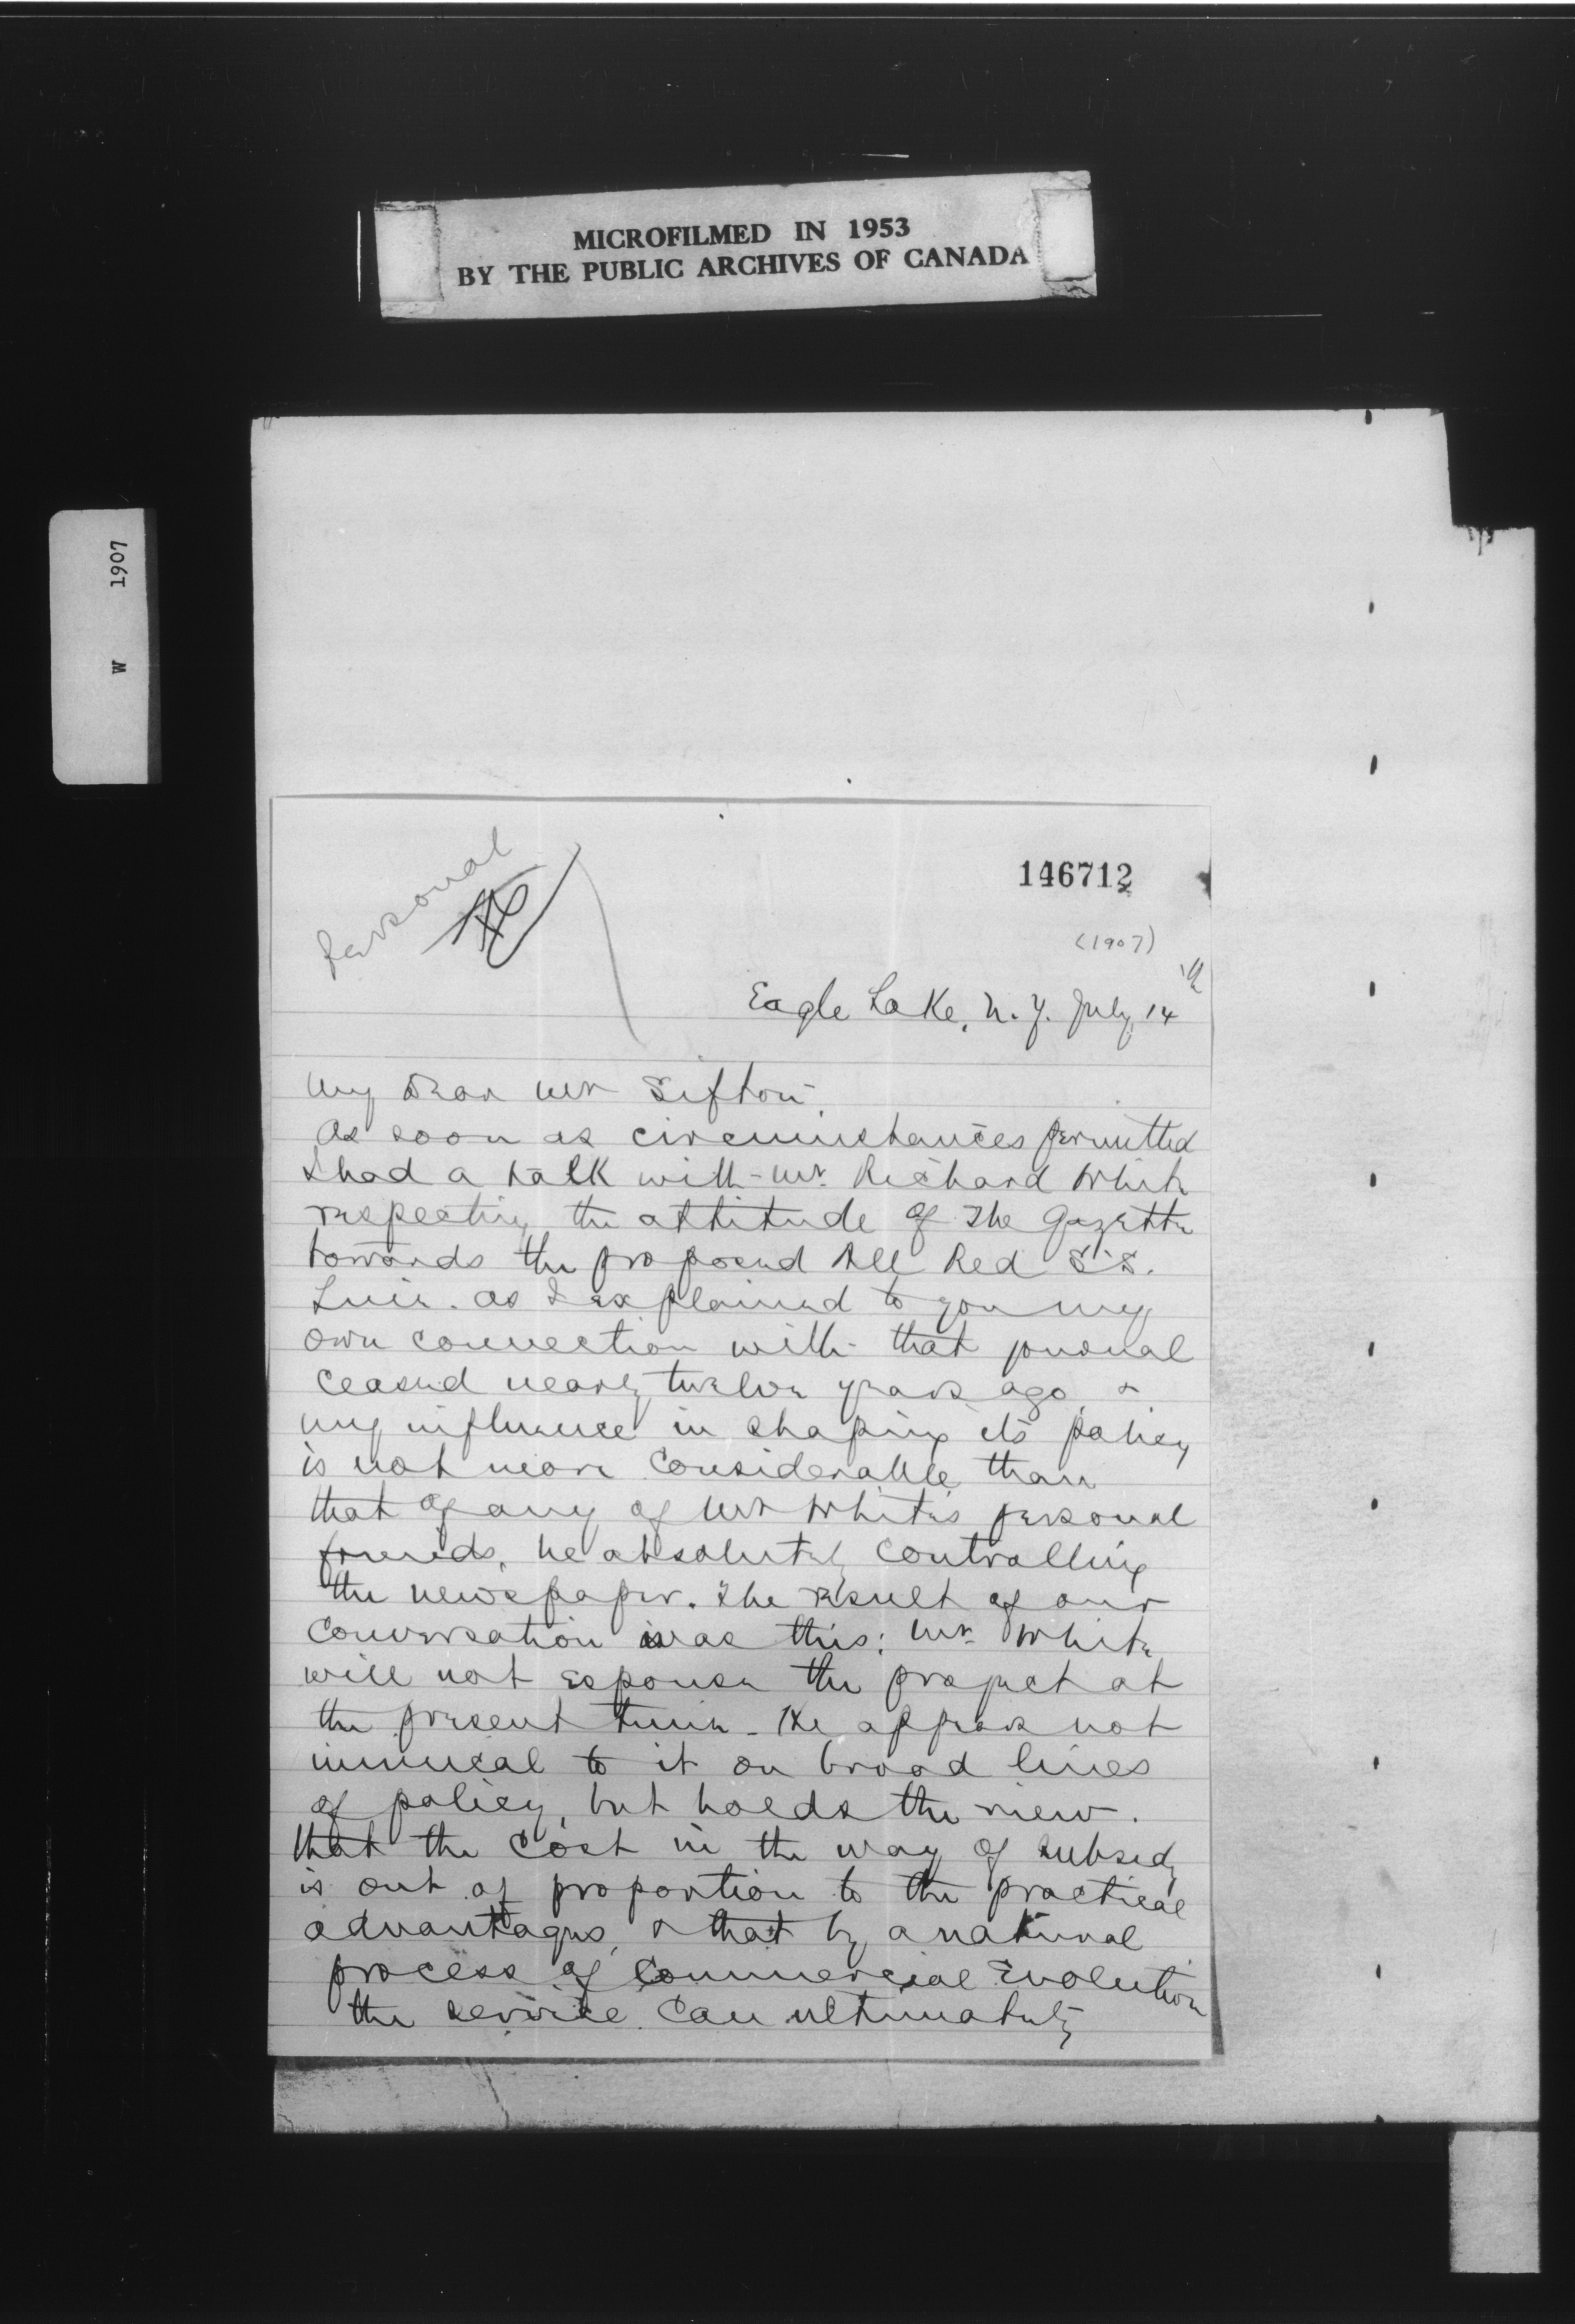 MICROFILMED IN 1953
BY THE PUBLIC ARCHIVES OF CANADA
W 1907
Personal
146712
(1907)
Eagle Lake, N.Y. July 14th
My Dear Mr Sifton,
As soon as circumstances permitted
I had a talk with Mr. Richard White
respecting the attitude of The Gazette
towards the proposed All Red S.S.
Line. As I explained to you my
own connection with that journal
ceased nearly twelve years ago, &
my influence in shaping its policy
is not more considerable than
that of any of Mr White's personal
friends, he absolutely controlling
the newspaper. The result of our
conversation was this: Mr. White
will not espouse the project at
the present time. He appears not
inimical to it on broad lines
of policy, but holds the view
that the cost in the way of subsidy
is out of proportion to the practical
advantages, & that by a natural
process of commercial evolution
the service can ultimately